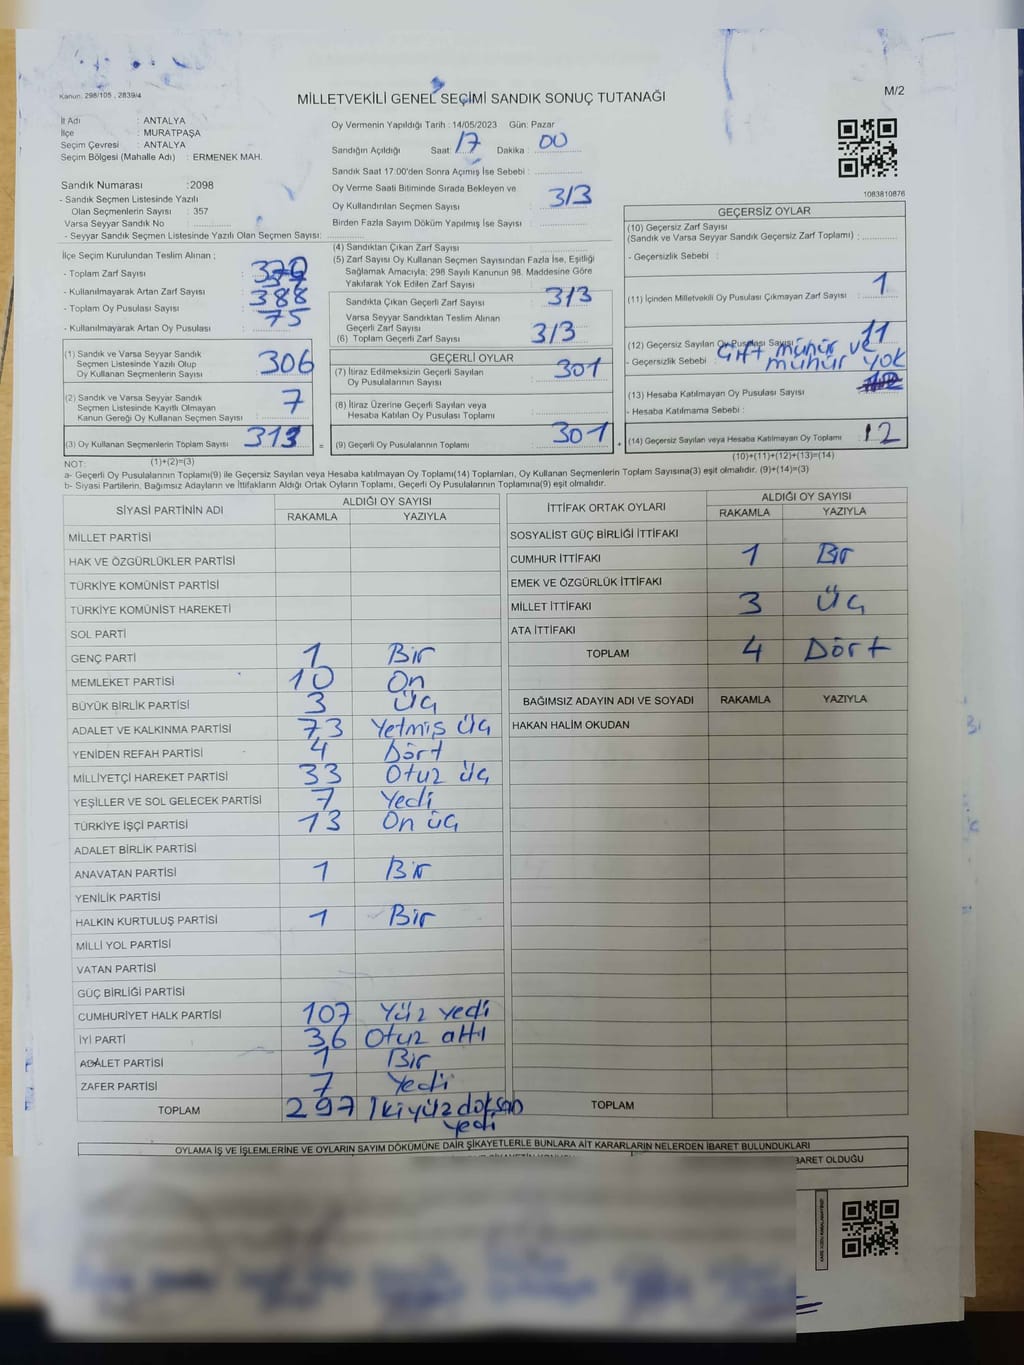 Kanun: 298/105 , 2839/4
MİLLETVEKİLİ GENEL SEÇİMİ SANDIK SONUÇ TUTANAĞI
M/2
İl Adı : ANTALYA
İlçe : MURATPAŞA
Seçim Çevresi : ANTALYA
Seçim Bölgesi (Mahalle Adı) : ERMENEK MAH.
Sandık Numarası :2098
- Sandık Seçmen Listesinde Yazılı
Olan Seçmenlerin Sayısı : 357
Varsa Seyyar Sandık No :
- Seyyar Sandık Seçmen Listesinde Yazılı Olan Seçmen Sayısı:
Oy Vermenin Yapıldığı Tarih : 14/05/2023 Gün: Pazar
Sandığın Açıldığı Saat : 17 Dakika : 00
Sandık Saat 17:00'den Sonra Açımış İse Sebebi :
Oy Verme Saati Bitiminde Sırada Bekleyen ve
Oy Kullandırılan Seçmen Sayısı : 313
Birden Fazla Sayım Döküm Yapılmış İse Sayısı :
1083810876
İlçe Seçim Kurulundan Teslim Alınan ;
- Toplam Zarf Sayısı : 370
- Kullanılmayarak Artan Zarf Sayısı :
- Toplam Oy Pusulası Sayısı : 388
- Kullanılmayarak Artan Oy Pusulası : 75
(1) Sandık ve Varsa Seyyar Sandık
Seçmen Listesinde Yazılı Olup
Oy Kullanan Seçmenlerin Sayısı : 306
(2) Sandık ve Varsa Seyyar Sandık
Seçmen Listesinde Kayıtlı Olmayan
Kanun Gereği Oy Kullanan Seçmen Sayısı : 7
(3) Oy Kullanan Seçmenlerin Toplam Sayısı : 313
(1)+(2)=(3)
(4) Sandıktan Çıkan Zarf Sayısı
(5) Zarf Sayısı Oy Kullanan Seçmen Sayısından Fazla İse, Eşitliği
Sağlamak Amacıyla; 298 Sayılı Kanunun 98. Maddesine Göre
Yakılarak Yok Edilen Zarf Sayısı :
Sandıkta Çıkan Geçerli Zarf Sayısı : 313
Varsa Seyyar Sandıktan Teslim Alınan
Geçerli Zarf Sayısı :
(6) Toplam Geçerli Zarf Sayısı : 313
GEÇERLİ OYLAR
(7) İtiraz Edilmeksizin Geçerli Sayılan
Oy Pusulalarının Sayısı : 301
(8) İtiraz Üzerine Geçerli Sayılan veya
Hesaba Katılan Oy Pusulası Toplamı :
= (9) Geçerli Oy Pusulalarının Toplamı : 301
GEÇERSİZ OYLAR
(10) Geçersiz Zarf Sayısı
(Sandık ve Varsa Seyyar Sandık Geçersiz Zarf Toplamı) :
- Geçersizlik Sebebi :
(11) İçinden Milletvekili Oy Pusulası Çıkmayan Zarf Sayısı : 1
(12) Geçersiz Sayılan Oy Pusulası Sayısı : 11
- Geçersizlik Sebebi : Çift mühür ve
mühür yok
(13) Hesaba Katılmayan Oy Pusulası Sayısı :
- Hesaba Katılmama Sebebi :
+ (14) Geçersiz Sayılan veya Hesaba Katılmayan Oy Toplamı : 12
(10)+(11)+(12)+(13)=(14)
NOT:
a- Geçerli Oy Pusulalarının Toplamı(9) ile Geçersiz Sayılan veya Hesaba katılmayan Oy Toplamı(14) Toplamları, Oy Kullanan Seçmenlerin Toplam Sayısına(3) eşit olmalıdır. (9)+(14)=(3)
b- Siyasi Partilerin, Bağımsız Adayların ve İttifakların Aldığı Ortak Oyların Toplamı, Geçerli Oy Pusulalarının Toplamına(9) eşit olmalıdır.
SİYASİ PARTİNİN ADI ALDIĞI OY SAYISI
RAKAMLA YAZIYLA
MİLLET PARTİSİ
HAK VE ÖZGÜRLÜKLER PARTİSİ
TÜRKİYE KOMÜNİST PARTİSİ
TÜRKİYE KOMÜNİST HAREKETİ
SOL PARTİ
GENÇ PARTİ 1 Bir
MEMLEKET PARTİSİ 10 On
BÜYÜK BİRLİK PARTİSİ 3 Üç
ADALET VE KALKINMA PARTİSİ 73 Yetmiş üç
YENİDEN REFAH PARTİSİ 4 Dört
MİLLİYETÇİ HAREKET PARTİSİ 33 Otuz üç
YEŞİLLER VE SOL GELECEK PARTİSİ 7 Yedi
TÜRKİYE İŞÇİ PARTİSİ 13 On üç
ADALET BİRLİK PARTİSİ
ANAVATAN PARTİSİ 1 Bir
YENİLİK PARTİSİ
HALKIN KURTULUŞ PARTİSİ 1 Bir
MİLLİ YOL PARTİSİ
VATAN PARTİSİ
GÜÇ BİRLİĞİ PARTİSİ
CUMHURİYET HALK PARTİSİ 107 Yüz yedi
İYİ PARTİ 36 Otuz altı
ADALET PARTİSİ 1 Bir
ZAFER PARTİSİ 7 Yedi
TOPLAM 297 İkiyüz doksan
yedi
İTTİFAK ORTAK OYLARI ALDIĞI OY SAYISI
RAKAMLA YAZIYLA
SOSYALİST GÜÇ BİRLİĞİ İTTİFAKI
CUMHUR İTTİFAKI 1 Bir
EMEK VE ÖZGÜRLÜK İTTİFAKI
MİLLET İTTİFAKI 3 Üç
ATA İTTİFAKI
TOPLAM 4 Dört
BAĞIMSIZ ADAYIN ADI VE SOYADI RAKAMLA YAZIYLA
HAKAN HALİM OKUDAN
TOPLAM
OYLAMA İŞ VE İŞLEMLERİNE VE OYLARIN SAYIM DÖKÜMÜNE DAİR ŞİKAYETLERLE BUNLARA AİT KARARLARIN NELERDEN İBARET BULUNDUKLARI
BARET OLDUĞU